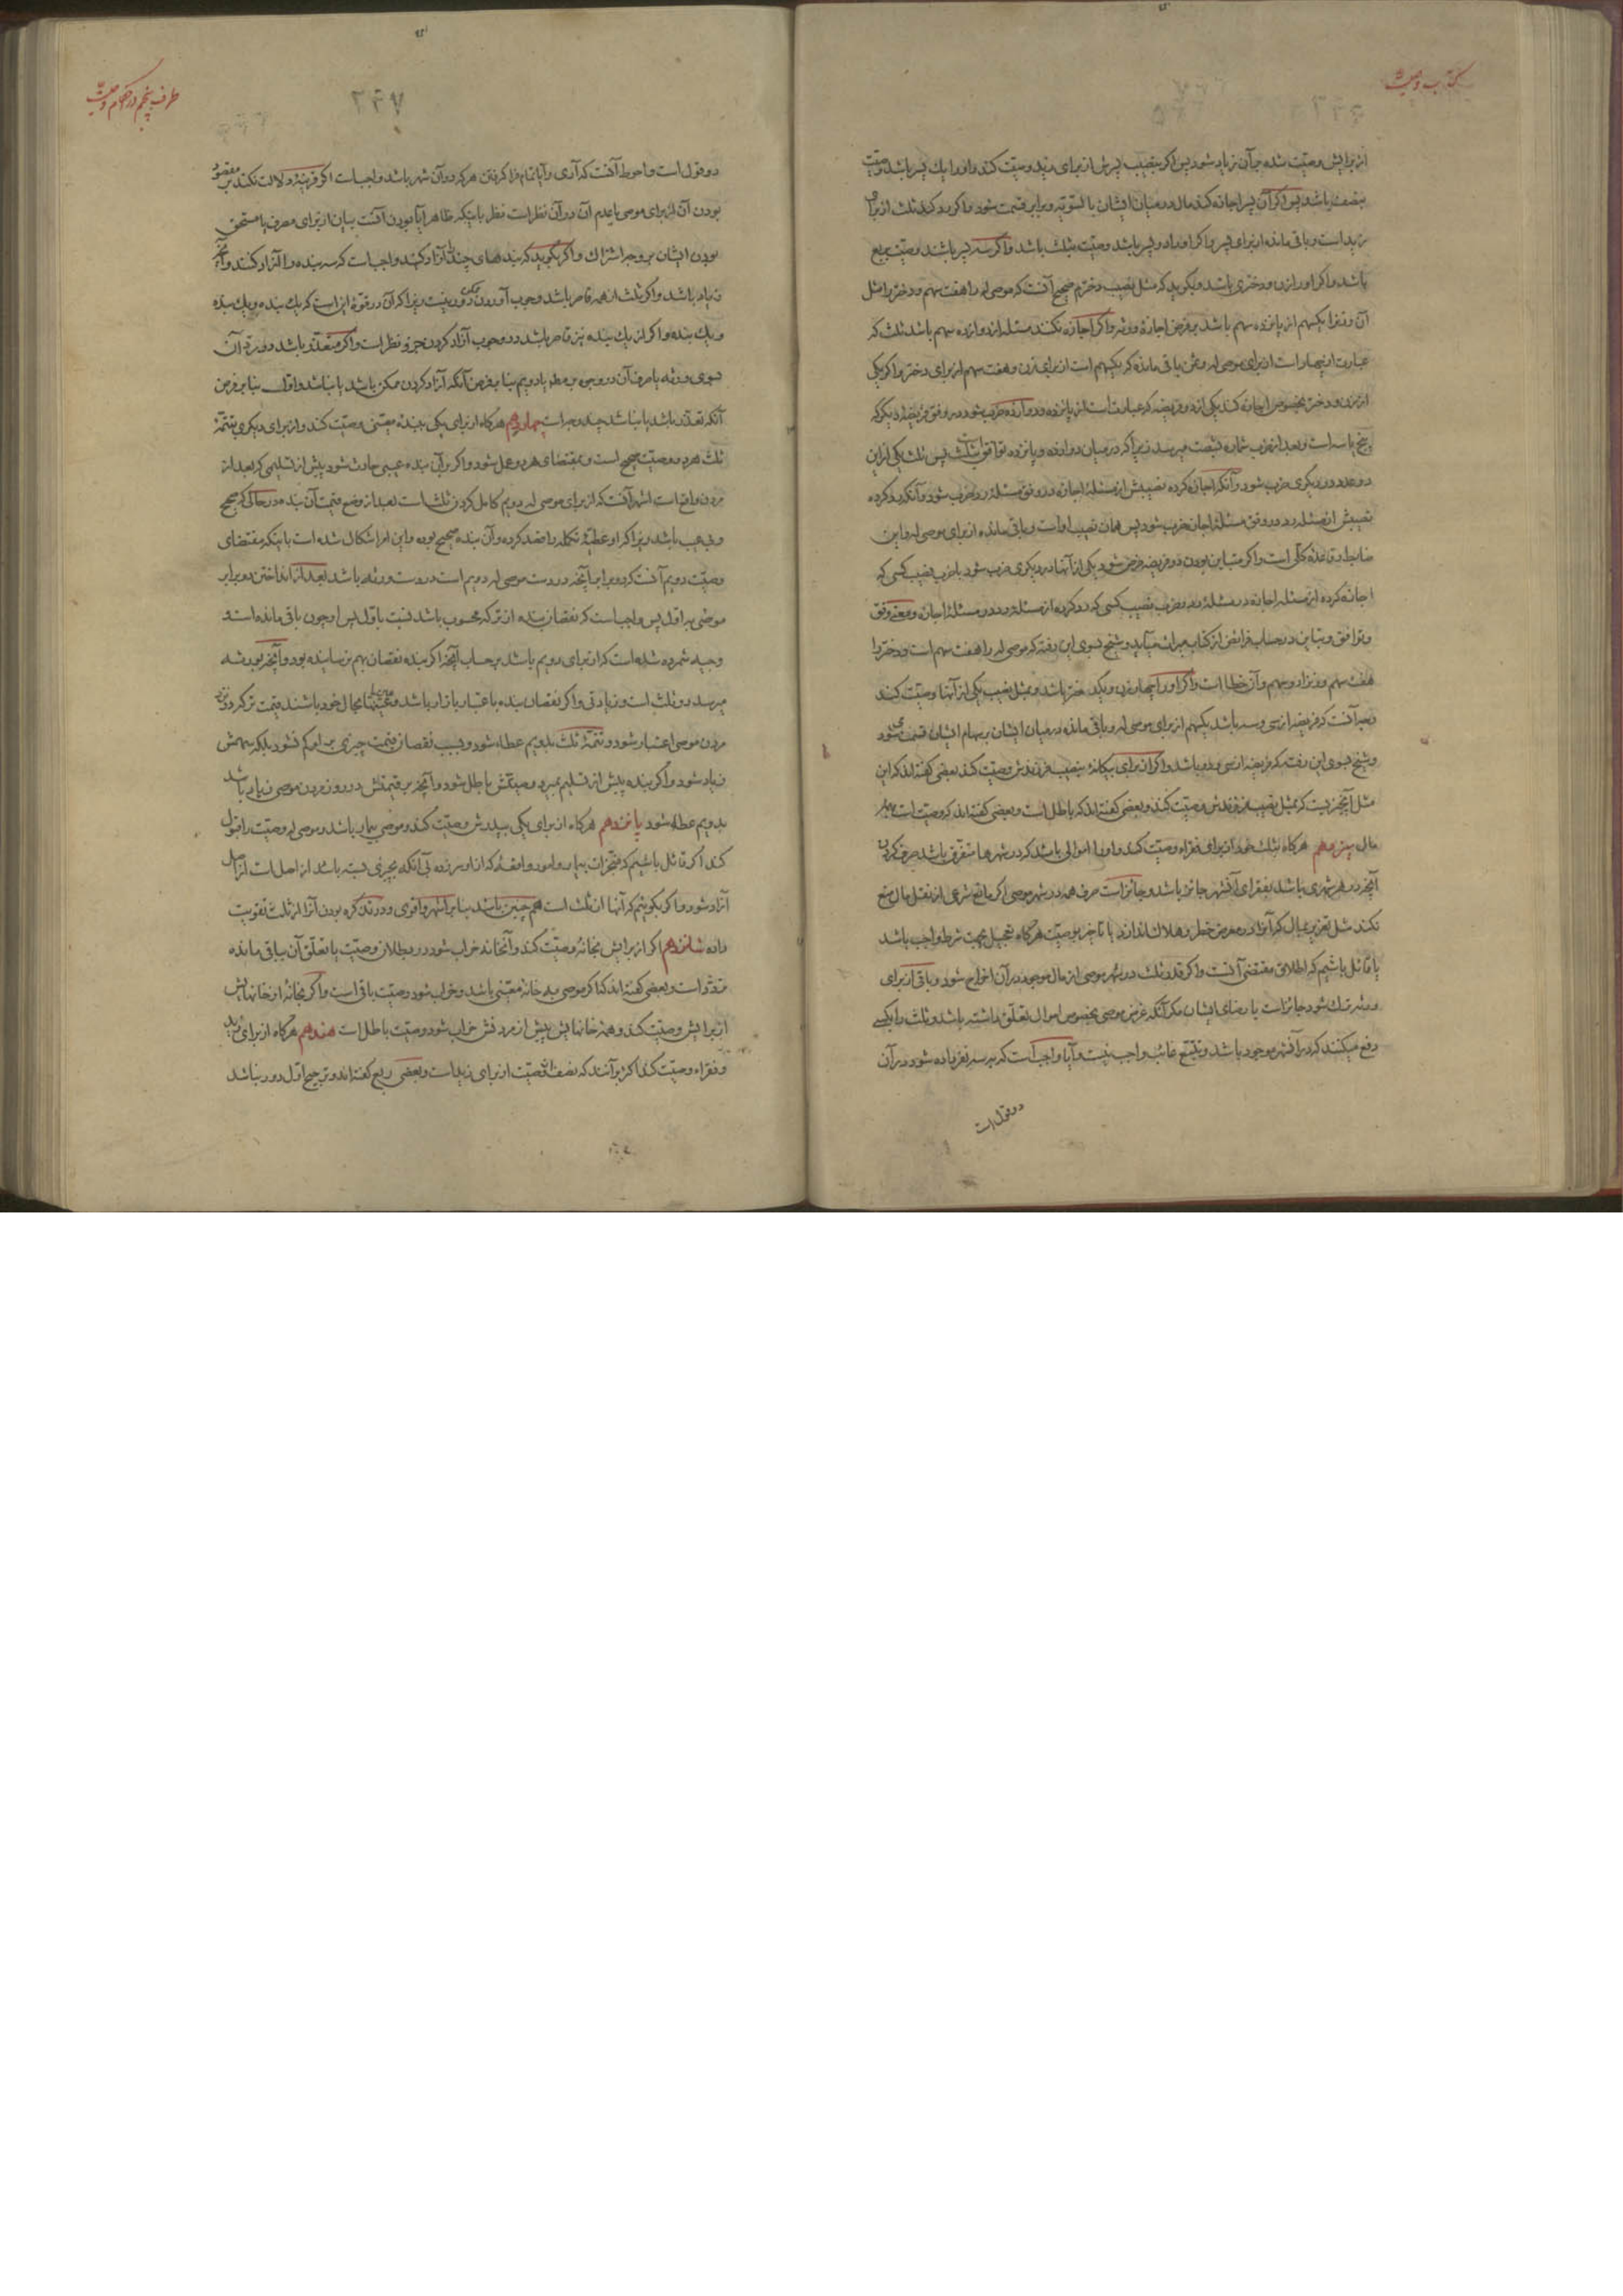 کتاب وصیت
از برایش وصیت شده بر آن زیاد شود پس اگر بنصیب پسرش از برای زید وصیت کند و او را یك پسر باشد وصیت
بنصف باشد پس اگر آن پسر اجازه کند مال در میان ایشان بالسّویّه و برابر قسمت شود و اگر رد کند ثلث از برای
زید است و باقی مانده از برای پسر و اگر او را دو پسر باشد وصیّت بثلث باشد و اگر سه پسر باشند وصیّت بربع
باشد و اگر او را زن و دختری باشد و بگوید که مثل نصیب دخترم صحیح آنست که موصی له را هفت سهم و دختر را مثل
آن و زنرا یکسهم از پانزده سهم باشد بر فرض اجازهٔ ورثه و اگر اجازه نکنند مسئله از دوازده سهم باشد ثلث که
عبارت از چهار است از برای موصی له و ثمن باقی مانده که یکسهم است از برای زن و هفت سهم از برای دختر و اگر یکی
از زن و دختر بخصوص اجازه کند یکی از دو فریضه که عبارت است از پانزده و دوازده ضرب شود در وفق فریضهٔ دیگر که
پنج یا سه است و بعد از ضرب شماره بشصت میرسد زیرا که در میان دوازده و پانزده توافق بثلث است پس ثلث یکی از این
دو عدد در دیگری ضرب شود و آنکه اجازه کرده نصیبش از مسئلهٔ اجازه در وفق مسئلهٔ رد ضرب شود و آنکه رد کرده
نصیبش از مسئله رد در وفق مسئلهٔ اجازه ضرب شود پس همان نصیب او است و باقی مانده از برای موصی له و این
ضابطه و قاعدهٔ کلّی است و اگر متباین بودن دو فریضه فرض شود یکی از آنها در دیگری ضرب شود با ضرب نصیب کسی که
اجازه کرده از مسئله اجازه در مسئلهٔ رد و ضرب نصیب کسی که رد کرده از مسئلهٔ رد در مسئلهٔ اجازه و معنی وفق
و توافق و تباین در حساب فرائض از کتاب میراث میآید و شیخ بسوی این رفته که موصی له را هفت سهم است و دختر را
هفت سهم و زنرا دو سهم و آن خطا است و اگر او را چهار زن و یك دختر باشد و بمثل نصیب یکی از آنها وصیّت کند
وجه آنست که فریضه از سی و سه باشد یکسهم از برای موصی له و باقی مانده در میان ایشان بر سهام ایشان قسمت می شود
و شیخ بسوی این رفته که فریضه از سی و دو باشد و اگر از برای بیگانهٔ بنصیب فرزندش وصیّت کند بعضی گفته‌اند که این
مثل آنچیز نیست که بمثل نصیب فرزندش وصیّت کند و بعضی گفته‌اند که باطل است و بعضی گفته‌اند که وصیّت است بهمهٔ
مال سیزدهم هرگاه بثلث خود از برای فقراء وصیّت کند و او را اموالی باشد که در شهرها متفرّق باشد صرف کردن
آنچه در هر شهری باشد بفقرای آنشهر جائز باشد و جائز است صرف همه در شهر موصی اگر مانع شرعی از نقل مال منع
نکند مثل تغریر بمال که آنرا در معرض خطر و هلاك اندازند یا تأخیر وصیّت هرگاه تعجیل بجهت شرط واجب باشد
یا قائل باشیم که اطلاق مقتضی آنست و اگر قدر ثلث در شهر موصی از مال موجود در آن اخراج شود و باقی از برای
ورثه ترك شود جائز است یا رضای ایشان مگر آنکه غرض موصی بخصوص اموال تعلّق داشته باشد و ثلث را بکسی
دفع میکنند که در آنشهر موجود باشد و تتبّع غائب واجب نیست و آیا واجب است که بر سه نفر داده شود در آن
دو قول است
طرف پنجم در احکام وصیّت
۲۴۷
دو قول است و احوط آنست که آری و آیا تمام فرا گرفتن هر که در آن شهر باشد واجب است اگر قرینهٔ دلالت نکند بر مقصود
بودن آن از برای موصی یا عدم آن در آن نظر است نظر باینکه ظاهر آیا بودن آنست بیان از برای مصرف یا مستحق
بودن ایشان بر وجه اشتراك و اگر بگوید که بنده‌های چند را آزاد کنید واجب است که سه بنده را آزاد کنند و اگر
زیاد باشد و اگر ثلث از همه قاصر باشد وجوب آوردن ممکن دور نیست زیرا که آن در قوّهٔ این است که یك بنده و یك بنده
و یك بنده و اگر از یك بنده نیز قاصر باشد در وجوب آزاد کردن جزو نظر است و اگر متعذّر باشد در ردّ آن
بسوی ورثه یا صرف آن در وجوه برّ مطلقا یا دویم بنا بفرض آنکه آزاد کردن ممکن باشد یا نباشد و اوّل بنا بر فرض
آنکه تعذّر باشد یا نباشد چند وجه است چهاردهم هرگاه از برای یکی ببندهٔ معیّنی وصیّت کند و از برای دیگری بتتمّهٔ
ثلث هر دو وصیّت صحیح است و بمقتضای هر دو عمل شود و اگر بر آن بنده عیبی حادث شود پیش از تسلیمی که بعد از
مردن واقع است اشهر آنست که از برای موصی له دویم کامل کردن ثلث است بعد از وضع قیمت آن بنده در حالی که صحیح
و بی عیب باشد زیرا که او عطیّهٔ تکمله را قصد کرده و آن بنده صحیح بوده و این امر اشکال شده است باینکه مقتضای
وصیّت دویم آنست که دو برابر آنچه در دست موصی له دویم است در دست ورثه باشد بعد از انداختن دو برابر
موصی به اول پس واجب است که نقصان بنده از ترکه محسوب باشد نسبت باوّل پس او چون باقی مانده است و
وجیه شمرده شده است که از برای دویم باشد بر حساب آنچه اگر بنده نقصان بهم نرسانیده بود و آنچه بورثه
میرسد دو ثلث است و زیادتی و اگر نقصان بنده باعتبار بازار باشد و عینها بحال خود باشند قیمت ترکه در نزد
مردن موصی اعتبار شود و تتمّهٔ ثلث بدویم عطاء شود و بسبب نقصان قیمت چیزی بر او کم نشود بلکه سهمش
زیاد شود و اگر بنده پیش از تسلیم بمیرد وصیّتش باطل شود و آنچه بر قیمتش در روز مردن موصی زیاد باشد
بدویم عطا شود پانزدهم هرگاه از برای یکی بپدرش وصیّت کند و موصی بیمار باشد و موصی له وصیّت را قبول
کند اگر قائل باشیم که منجّزات بیمار و امور واقعهٔ که از او سر زده بی آنکه بچیزی بسته باشد از اصل است از اصل
آزاد شود و اگر بگوییم که آنها از ثلث است هم چنین باشد بنا بر اشهر و اقوی و در تذکره بودن آنرا از ثلث تقویت
داده شانزدهم اگر از برایش بخانهٔ وصیّت کند و آنخانه خراب شود در بطلان وصیّت یا تعلّق آن بباقی مانده
تردّد است و بعضی گفته‌اند که اگر موصی به خانهٔ معیّنی باشد و خراب شود وصیّت باقی است و اگر بخانهٔ از خانهایش
از برایش وصیّت کند و همهٔ خانهایش پیش از مردنش خراب شود وصیّت باطل است هفدهم هرگاه از برای زید
و فقراء وصیّت کند اکثر بر آنند که نصف وصیّت از برای زید است و بعضی ربع گفته‌اند و ترجیح اوّل دور نباشد